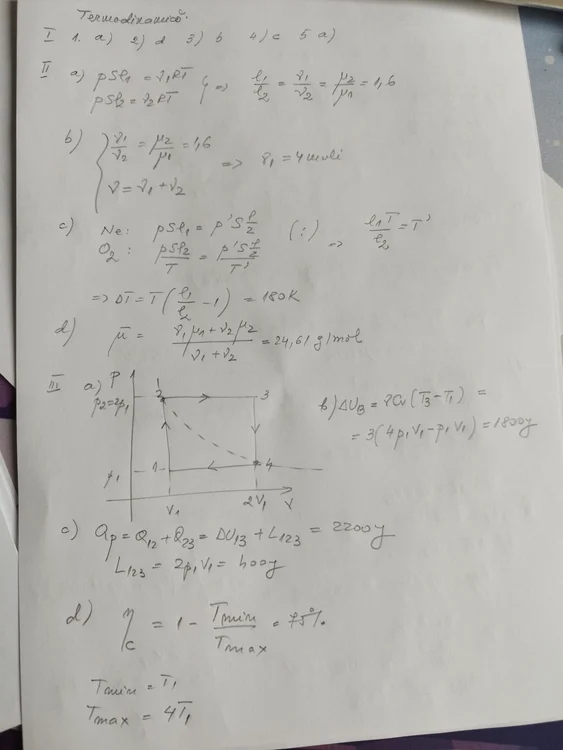 Termodinamică:
I 1. a) 2) d 3) b 4) c 5 a)
II a) pSl₁ = ν₁RT
pSl₂ = ν₂RT } => l₁/l₂ = ν₁/ν₂ = μ₂/μ₁ = 1,6
b) { ν₁/ν₂ = μ₂/μ₁ = 1,6
ν = ν₁ + ν₂ => ν₁ = 4 moli
c) Ne: pSl₁ = p'S l/2
O₂: pSl₂/T = p'S l/2 / T' (:) => l₁T/l₂ = T'
=> ΔT = T(l₁/l₂ - 1) = 180K
d) μ̄ = ν₁μ₁ + ν₂μ₂ / ν₁ + ν₂ = 24,61 g/mol
III a) p
p₂=2p₁ 2 3
p₁ 1 4
V₁ 2V₁ V
b) ΔU₁₃ = νCv(T₃ - T₁) =
= 3(4p₁V₁ - p₁V₁) = 1800J
c) Qp = Q₁₂ + Q₂₃ = ΔU₁₃ + L₁₂₃ = 2200J
L₁₂₃ = 2p₁V₁ = 400J
d) ηc = 1 - Tmin/Tmax = 75%
Tmin = T₁
Tmax = 4T₁